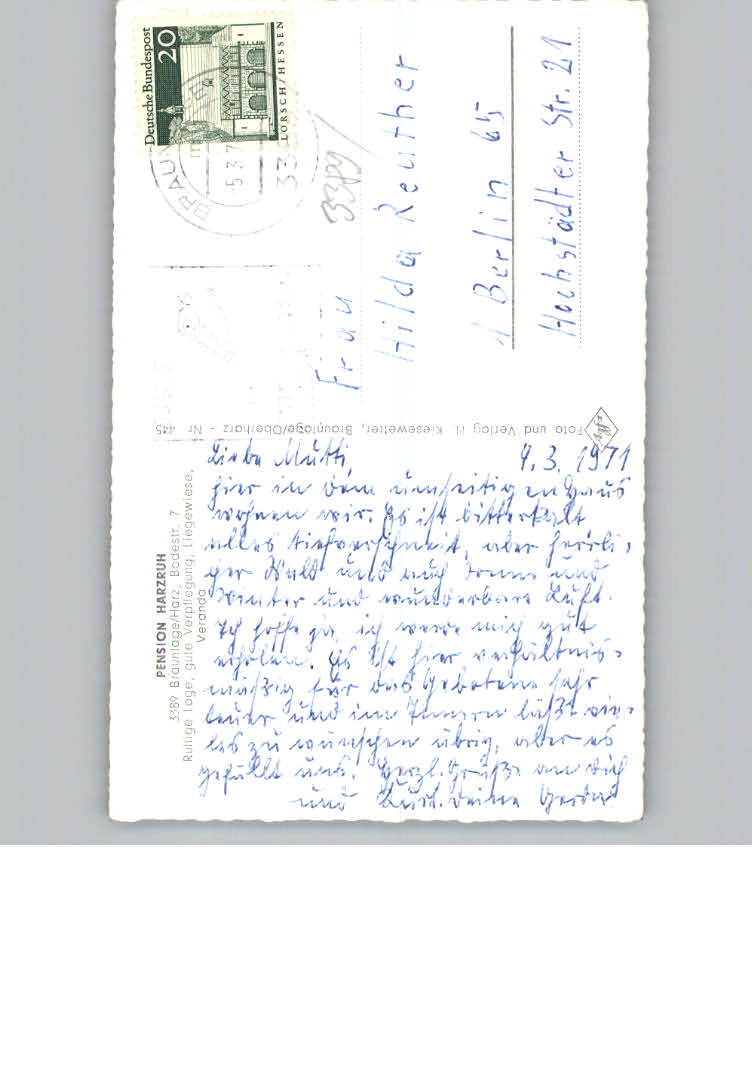 Deutsche Bundespost
20
LORSCH/HESSEN
BRAUN
5.3.7
33
3389
Frau
Hilda Reuther
1 Berlin 65
Hochstädter Str. 21
Foto und Verlag H. Kiesewetter, Braunlage/Oberharz - Nr. 445
PENSION HARZRUH
3389 Braunlage/Harz, Bodestr. 7
Ruhige Lage, gute Verpflegung, Liegewiese,
Veranda
Liebe Mutti, 4.3.1971
hier in dem umseitigen Haus
wohnen wir. Es ist bitterkalt
alles tiefverschneit, aber herrli-
cher Wald und auch Sonne und
Winter und wunderbare Luft.
Ich hoffe ja, ich werde mich gut
erholen. Es ist hier verhältnis-
mäßig für das Gebotene sehr
teuer und im Innern läßt vie-
les zu wünschen übrig, aber es
gefällt uns. Herzl. Grüße an Dich
und Deine Gerda